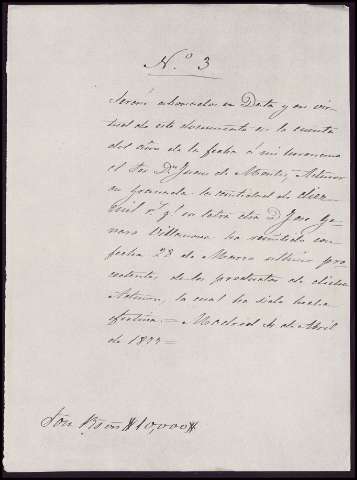 N.º 3
Serán abonados en Data y en vir-
tud de este documento en la cuenta
del año de la fecha á mi
el Sor Dn Juan de Montes,
en Granada la cantidad de diez
mil rs. qe. en letra d/a D. Jose Ge-
naro Villanova ha remitido con
fecha 28 de Marzo ultimo pro-
cedentes de los productos de dicha
la cual ha sido hecha
efectiva.= Madrid 4 de Abril
de 1877=
Son Rs vn #10,000#